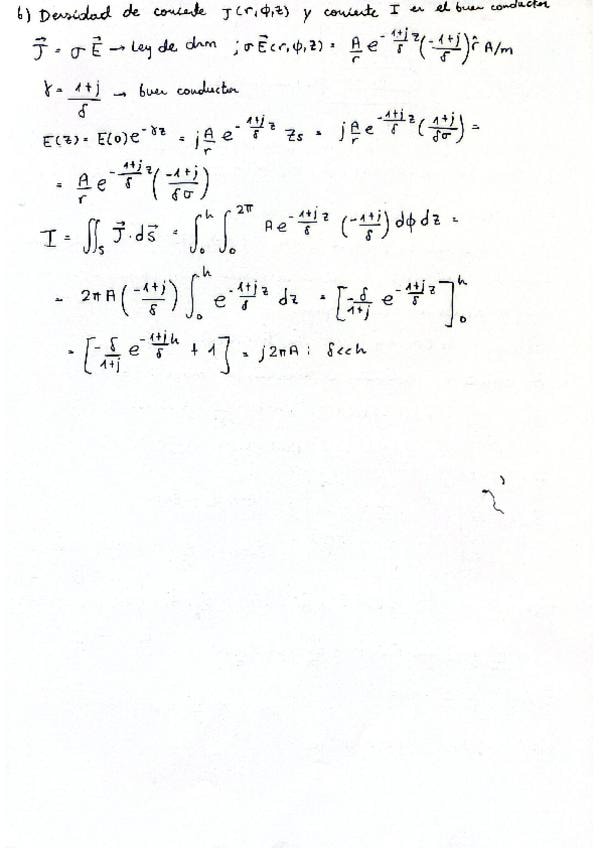 b) Densidad de corriente J(r,φ,z) y corriente I en el buen conductor
J⃗ = σ E⃗ → Ley de Ohm ; σE⃗(r,φ,z) = A/r e^(-(1+j)/δ z) ((-1+j)/δ) r̂ A/m
γ = (1+j)/δ → buen conductor
E(z) = E(0)e^(-γz) = j A/r e^(-(1+j)/δ z) Zs = j A/r e^(-(1+j)/δ z) ((1+j)/δσ) =
= A/r e^(-(1+j)/δ z) ((-1+j)/δσ)
I = ∬_S J⃗·ds⃗ = ∫_0^h ∫_0^2π A e^(-(1+j)/δ z) ((-1+j)/δ) dφ dz =
= 2πA ((-1+j)/δ) ∫_0^h e^(-(1+j)/δ z) dz = [-δ/(1+j) e^(-(1+j)/δ z)]_0^h
= [-δ/(1+j) e^(-(1+j)h/δ) + 1] = j2πA ; δ<<h